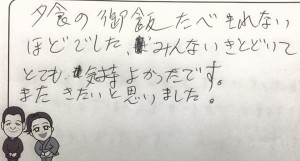 夕食の御飯たべきれない
ほどでした、みんないきとどいて
とても気持よかったです。
またきたいと思いました。